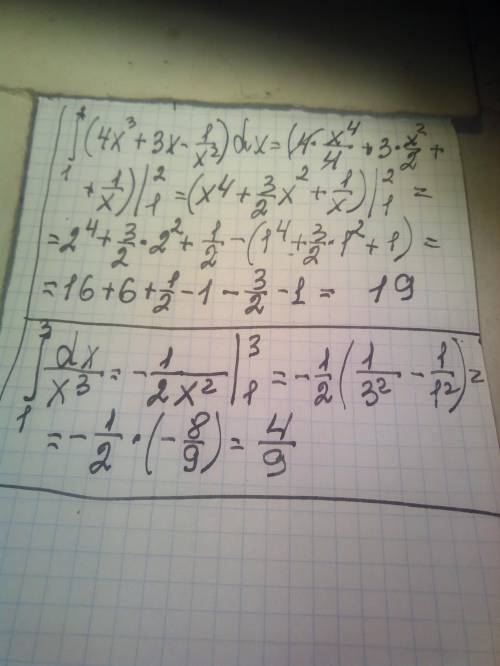 ∫₁² (4x³ + 3x - 1/x²) dx = (4 · x⁴/4 + 3 · x²/2 +
+ 1/x) |₁² = (x⁴ + 3/2 x² + 1/x) |₁² =
= 2⁴ + 3/2 · 2² + 1/2 - (1⁴ + 3/2 · 1² + 1) =
= 16 + 6 + 1/2 - 1 - 3/2 - 1 = 19
∫₁³ dx/x³ = - 1/2x² |₁³ = - 1/2 (1/3² - 1/1²) =
= - 1/2 · (- 8/9) = 4/9